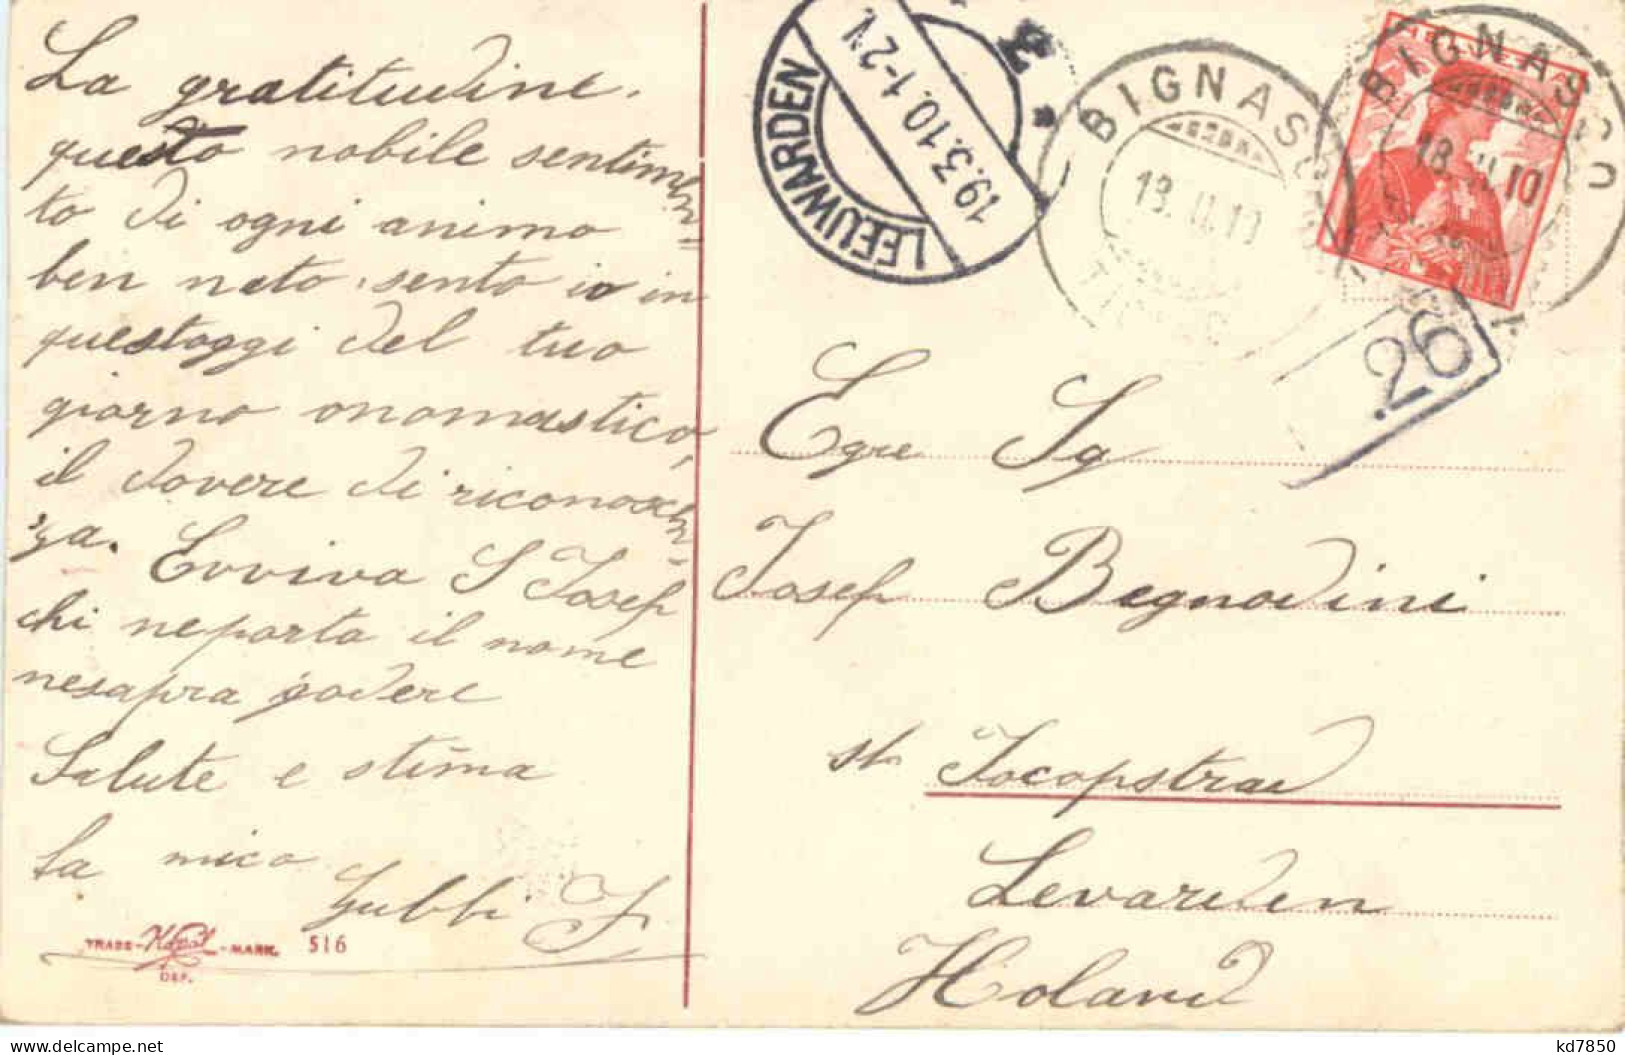 La gratitudine,
questo nobile sentimen=
to di ogni animo
ben nato, sento io in
quest'oggi del tuo
giorno onomastico,
il dovere di riconoscen=
za. Evviva S Josef
chi ne porta il nome
ne sapra godere
Salute e stima
la
Gubbi F
TRADE- -MARK. 516
DEP.
LEEUWARDEN
19.3.10.1-2V
3
BIGNASCO
18.III.10
BIGNASCO
18.III.10
HELVETIA
26
Egre Sg
Josef Begnodini
str Jacopstrad
Levarden
Holand
kd7850